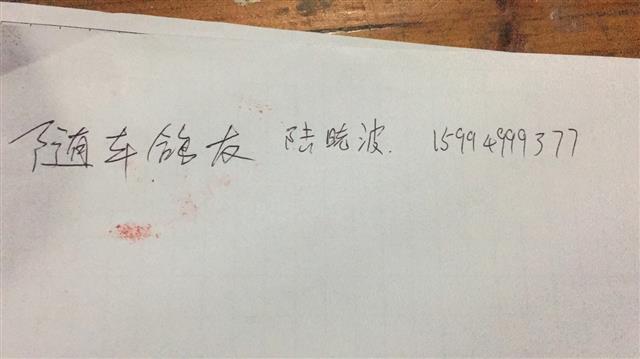 随车鸽友 陆晓波 15994999377